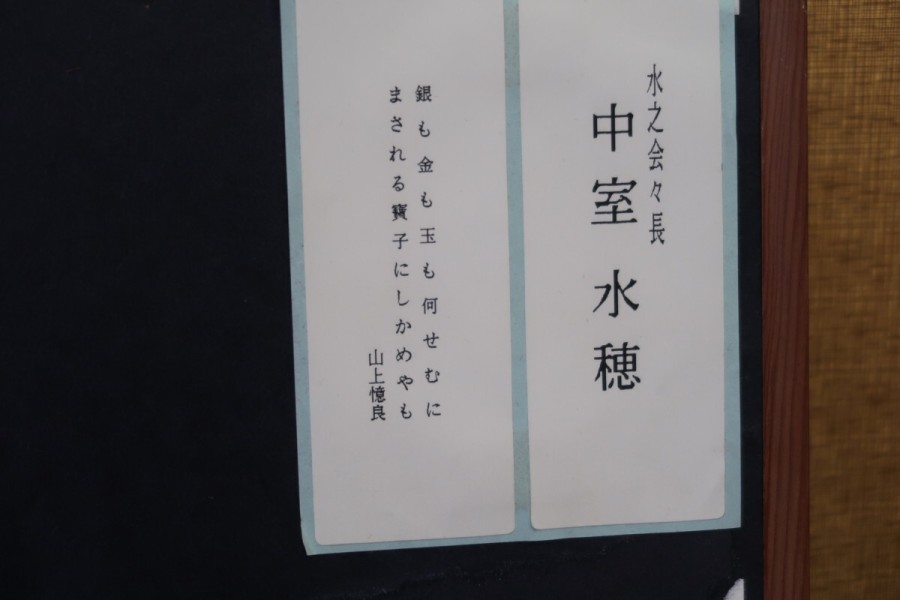 水之会々長
中室水穂
銀も金も玉も何せむに
まされる寶子にしかめやも
山上憶良